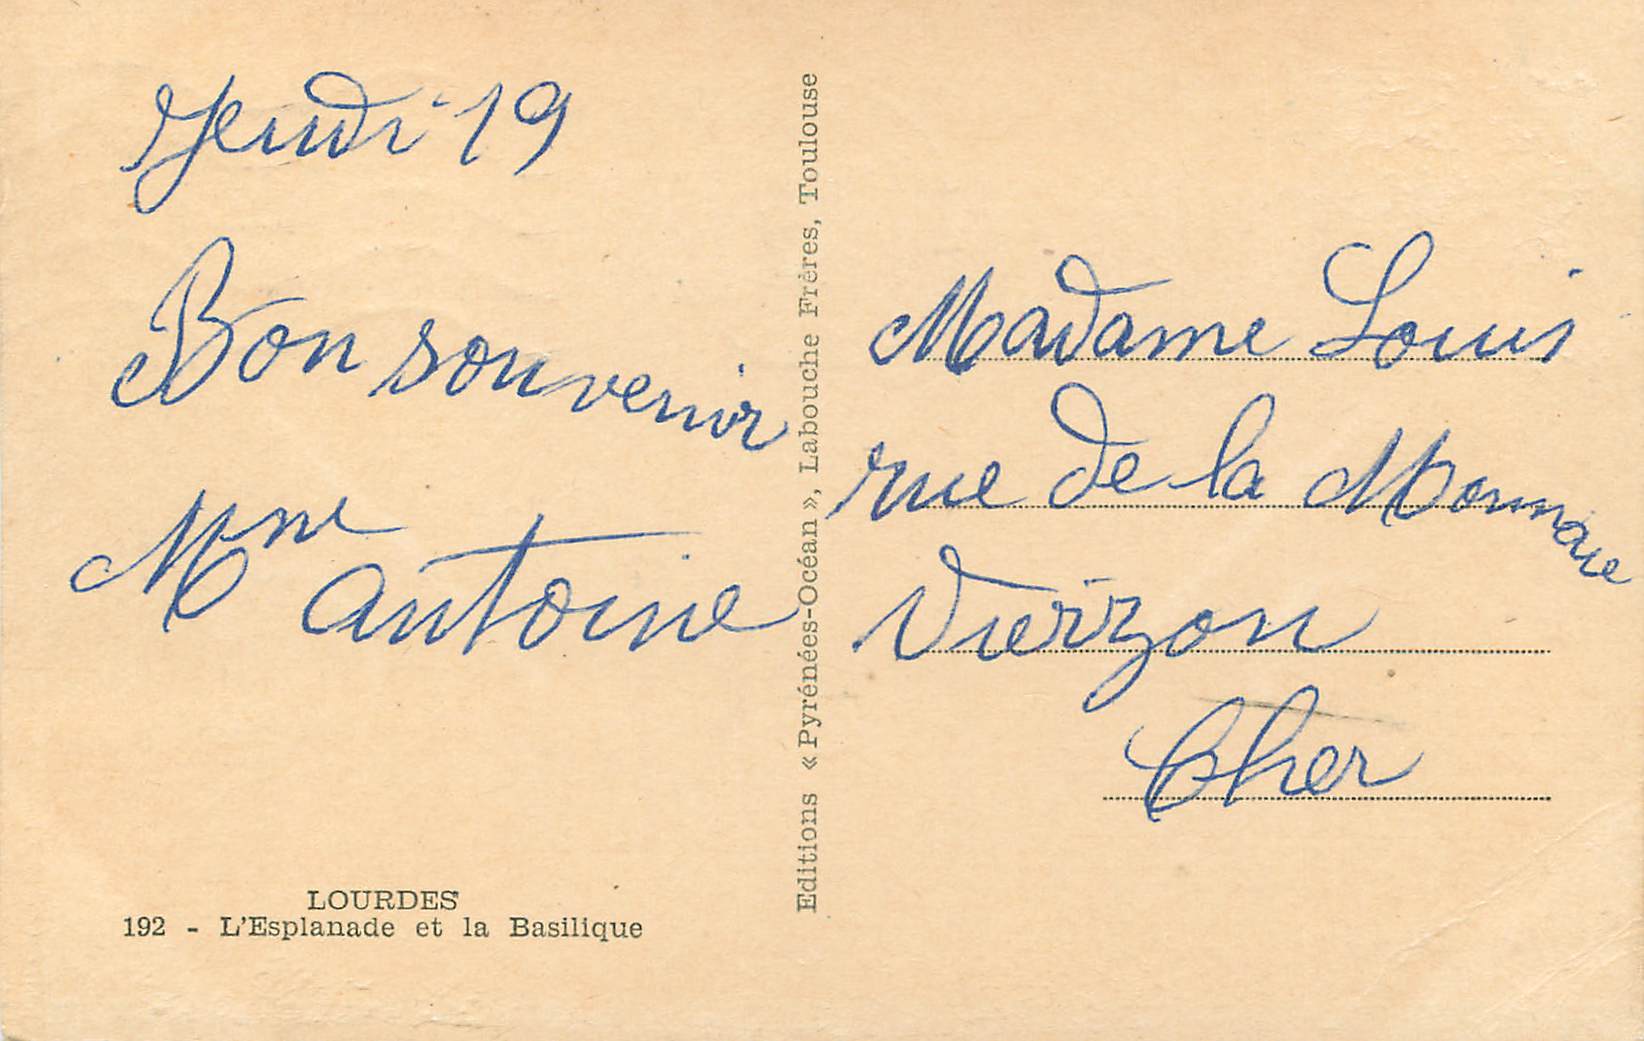 Jeudi 19
Bon souvenir
Mme
Antoine
LOURDES
192 - L'Esplanade et la Basilique
Editions « Pyrénées-Océan », Labouche Frères, Toulouse
Madame Louis
rue de la Monnaie
Vierzon
Cher